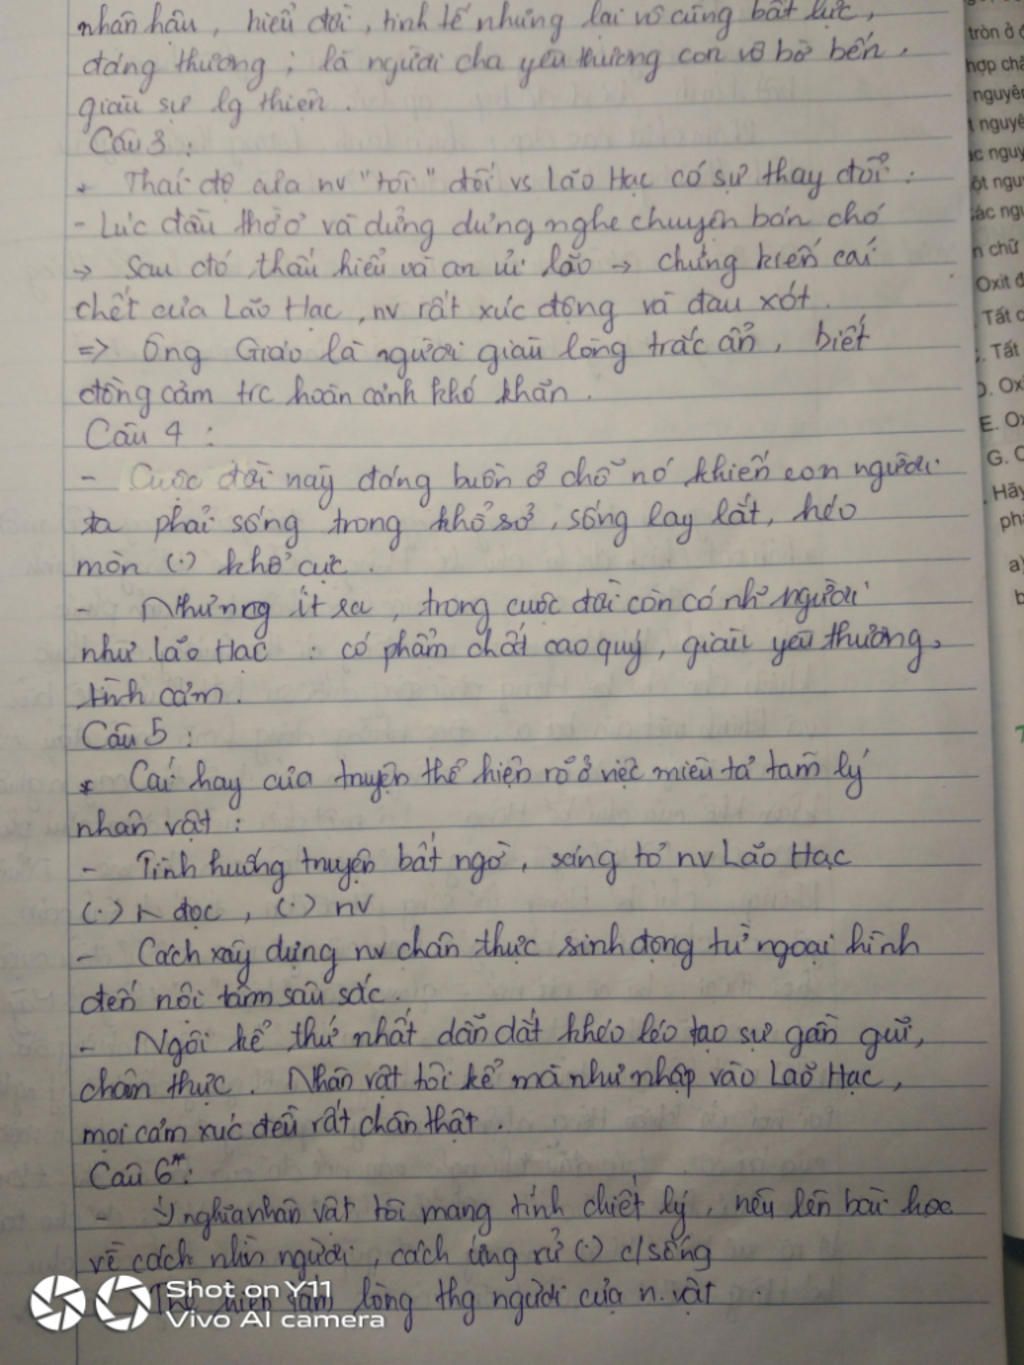 nhân hậu, hiểu đời, tinh tế nhưng lại vô cùng bất lực,
đáng thương ; là người cha yêu thương con vô bờ bến,
giàu sự lg thiện.
Câu 3 :
* Thái độ của nv "tôi" đối vs Lão Hạc có sự thay đổi :
- Lúc đầu thờ ơ và dửng dưng nghe chuyện bán chó
→ Sau đó thấu hiểu và an ủi lão → chứng kiến cái
chết của Lão Hạc, nv rất xúc động và đau xót.
=> Ông Giáo là người giàu lòng trắc ẩn, biết
đồng cảm trc hoàn cảnh khó khăn.
Câu 4 :
- Cuộc đời này đáng buồn ở chỗ nó khiến con người
ta phải sống trong khổ sở, sống lay lắt, héo
mòn (.) khổ cực.
- Nhưng ít ra, trong cuộc đời còn có nh~ người
như Lão Hạc : có phẩm chất cao quý, giàu yêu thương,
tình cảm.
Câu 5 :
* Cái hay của truyện thể hiện rõ ở việc miêu tả tâm lý
nhân vật :
- Tình huống truyện bất ngờ, sáng tỏ nv Lão Hạc
(.) đọc, (.) nv
- Cách xây dựng nv chân thực sinh động từ ngoại hình
đến nội tâm sâu sắc.
- Ngôi kể thứ nhất dẫn dắt khéo léo tạo sự gần gũi,
chân thực. Nhân vật tôi kể mà như nhập vào Lão Hạc,
mọi cảm xúc đều rất chân thật.
Câu 6*:
- Ý nghĩa nhân vật tôi mang tính chiết lý, nêu lên bài học
về cách nhìn người, cách ứng xử (.) c/sống
Thể hiện tấm lòng thg người của n.vật.
Shot on Y11
Vivo AI camera
tròn ở
hợp ch
nguyên
nguyê
nguy
ột ngu
các ng
n chữ
Oxit
Tất c
Tất
D. Ox
E. O
G.
Hãy
ph
a)
b
7